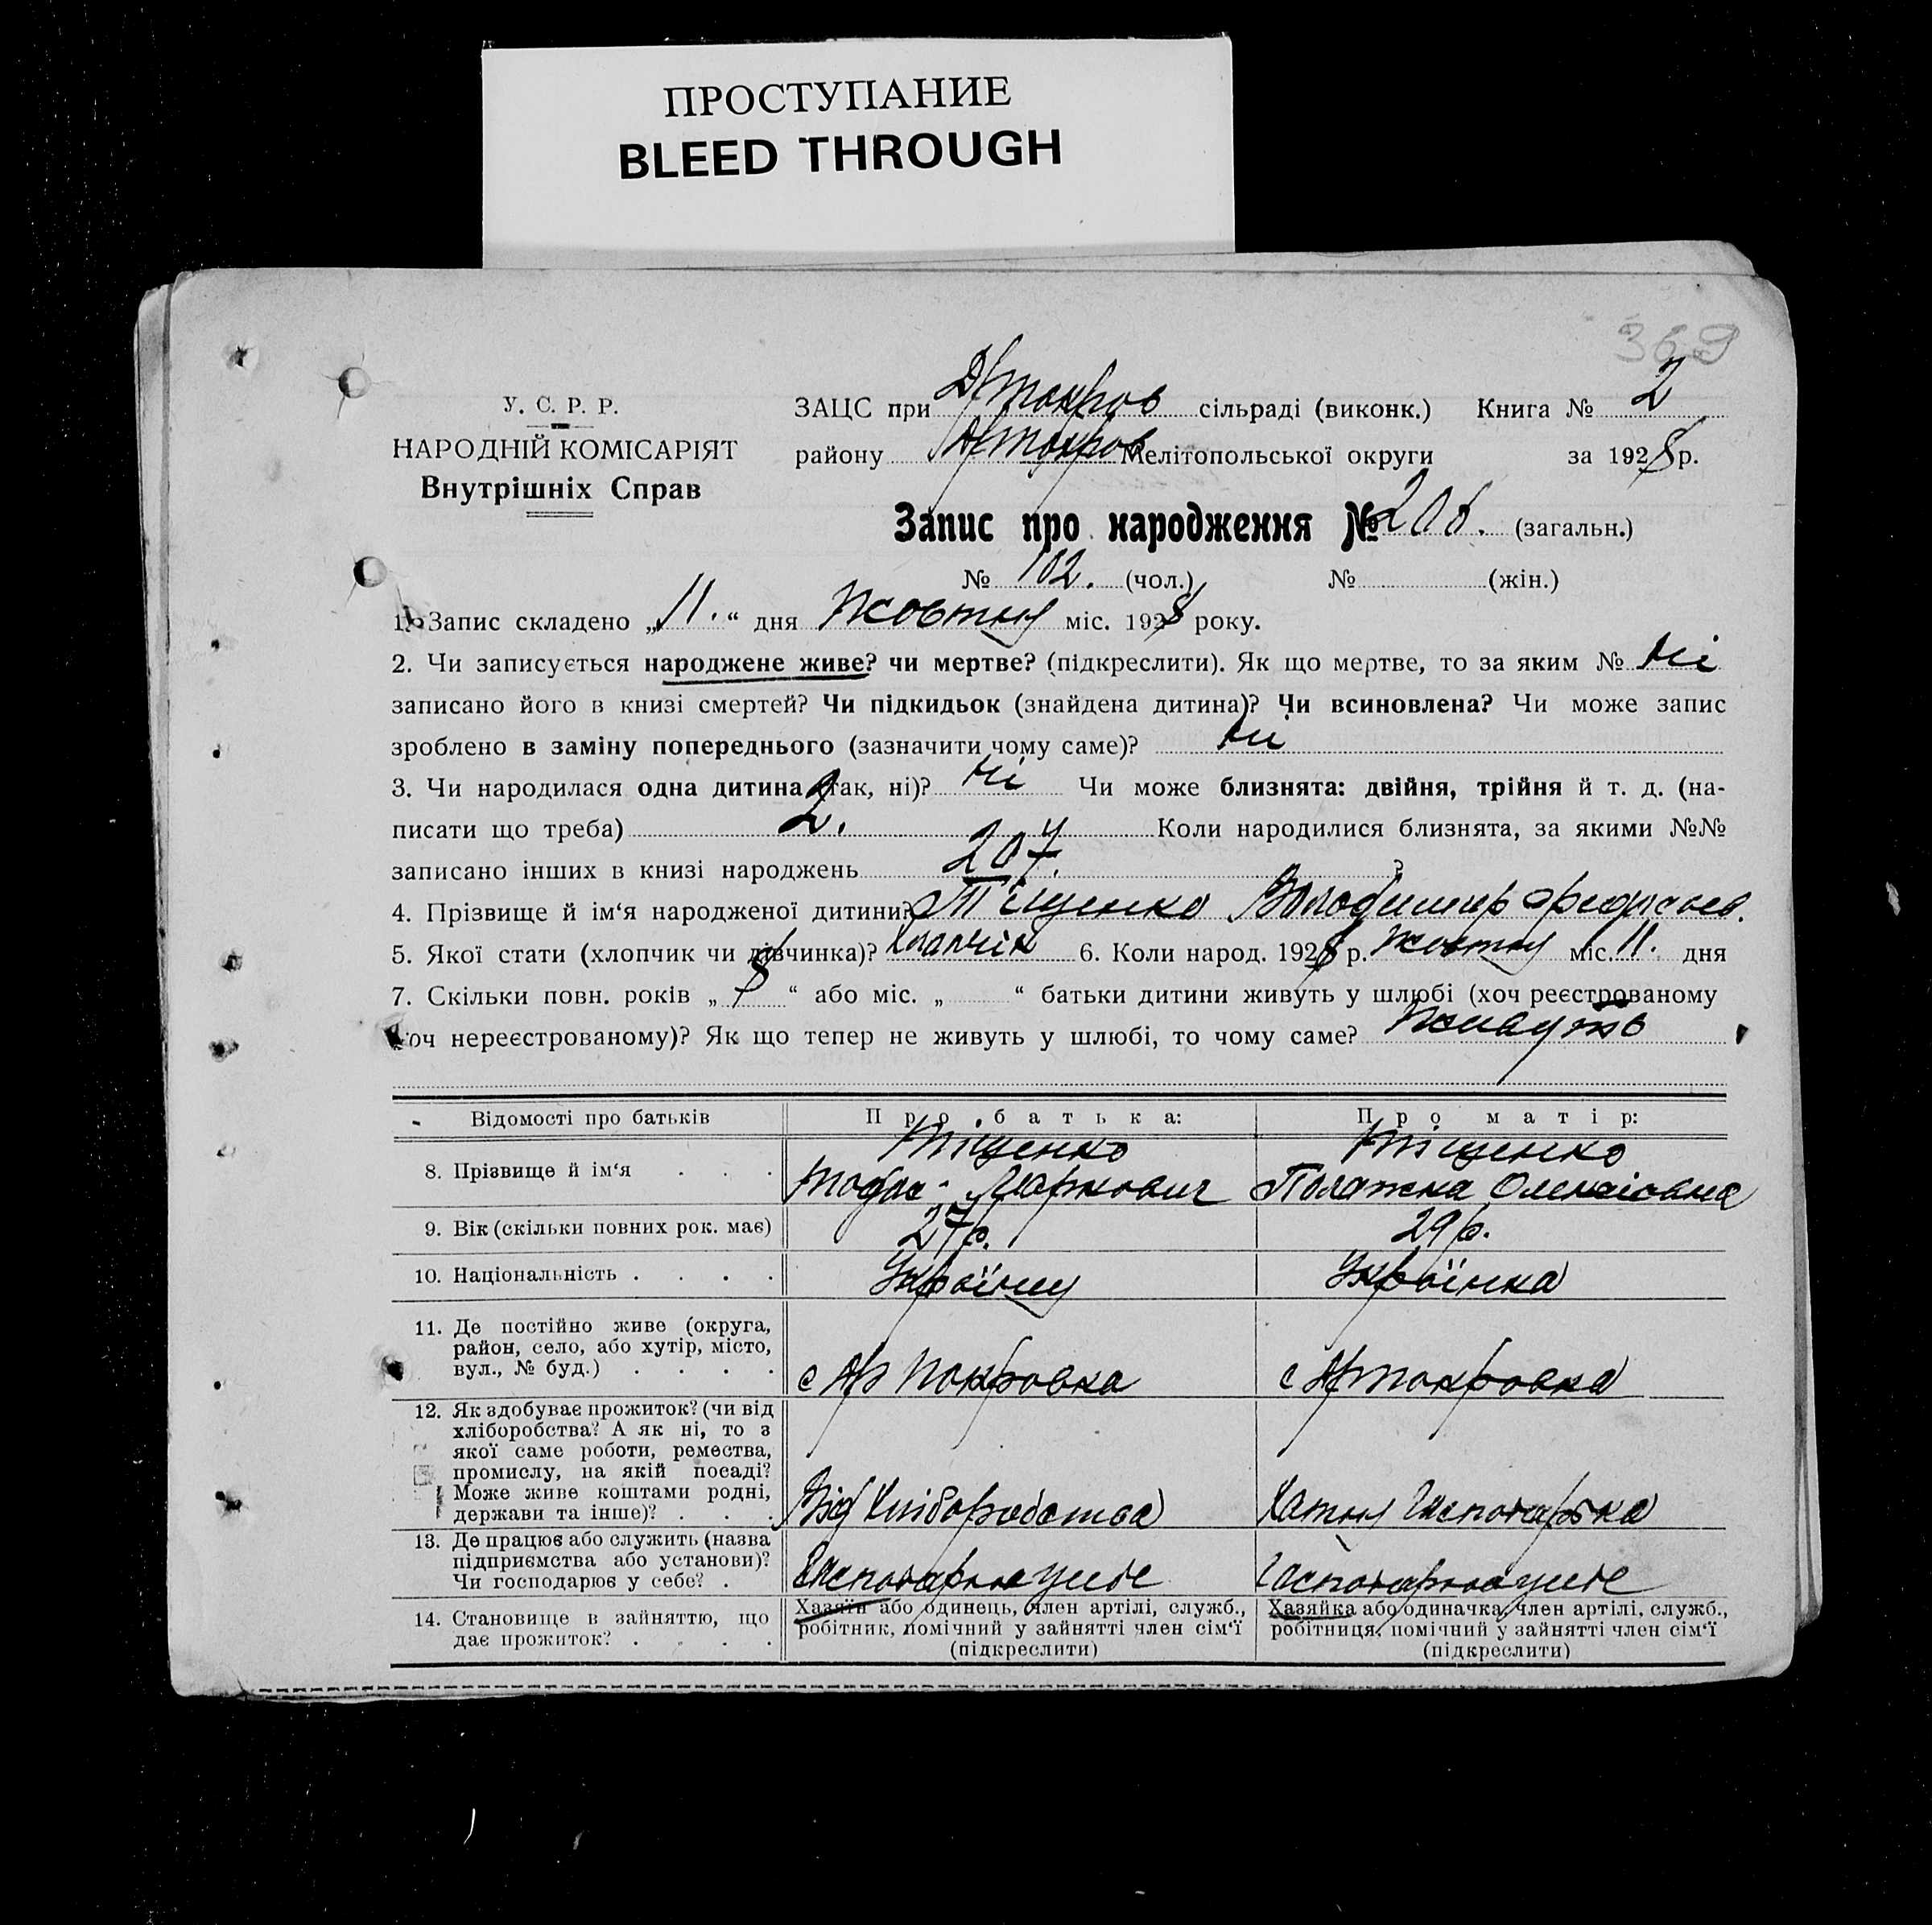 ПРОСТУПАНИЕ
BLEED THROUGH
369
У. С. Р. Р.
НАРОДНІЙ КОМІСАРІЯТ
Внутрішніх Справ
ЗАЦС при сільраді (виконк.) Книга № 2
району Мелітопольської округи за 1928 р.
Запис про народження № 206. (загальн.)
№ 102. (чол.) № (жін.)
1. Запис складено „11.“ дня Жовтня міс. 1928 року.
2. Чи записується народжене живе? чи мертве? (підкреслити). Як що мертве, то за яким № ні
записано його в книзі смертей? Чи підкидьок (знайдена дитина)? Чи всиновлена? Чи може запис
зроблено в заміну попереднього (зазначити чому саме)? ні
3. Чи народилася одна дитина (так, ні)? ні Чи може близнята: двійня, трійня й т. д. (на-
писати що треба) 2. Коли народилися близнята, за якими №№
записано інших в книзі народжень 207. ?
4. Прізвище й ім‘я народженої дитини? Тіщенко Володимир
5. Якої стати (хлопчик чи дівчинка)? Хлапчік 6. Коли народ. 1928 р. Жовтня міс. 11. дня
7. Скільки повн. років „8“ або міс. „ “ батьки дитини живуть у шлюбі (хоч реєстрованому
хоч нереєстрованому)? Як що тепер не живуть у шлюбі, то чому саме? Живуть
Відомості про батьків Про батька: Про матір:
8. Прізвище й ім‘я . . . Тіщенко Маркович Тіщенко Палажка Олексіовна
9. Вік (скільки повних рок. має) 27р. 29р.
10. Національність . . . . Українц Українка
11. Де постійно живе (округа,
район, село, або хутір, місто,
вул., № буд.) . . . . с Ар Покровка с Ар Покровка
12. Як здобуває прожиток? (чи від
хліборобства? А як ні, то з
якої саме роботи, ремества,
промислу, на якій посаді?
Може живе коштами родні,
держави та інше)? . . . Від Хліборобства Хатня Гаспотарка
13. Де працює або служить (назва
підприємства або установи)?
Чи господарює у себе? . Гаспотарює усебе Гаспотарює усебе
14. Становище в зайняттю, що
дає прожиток? . . . .
Хазяїн або одинець, член артілі, служб.,
робітник, помічний у зайнятті член сім‘ї
(підкреслити)
Хазяйка або одиначка, член артілі, служб.,
робітниця, помічний у зайнятті член сім‘ї
(підкреслити)